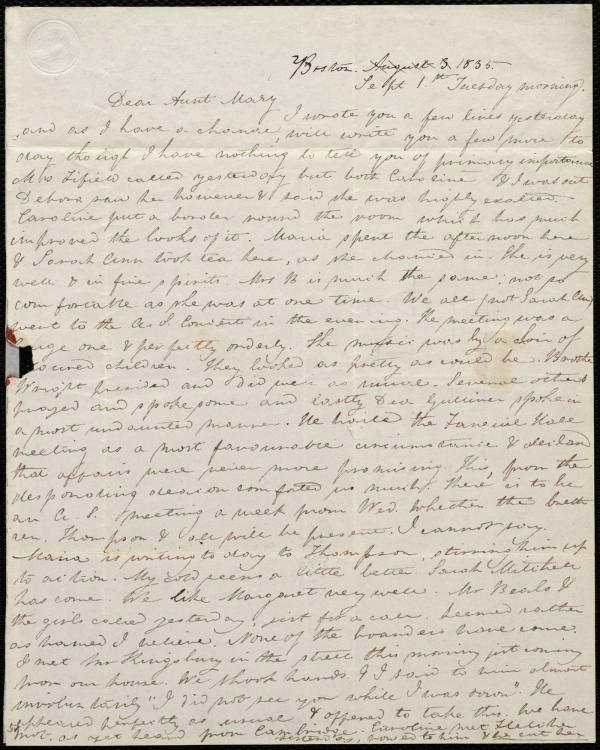 Boston. August 3. 1835.
Sept 1st Tuesday morning.
Dear Aunt Mary
I wrote you a few lines yesterday
and as I have a chance, will write you a few more to
day though I have nothing to tell you of primary importance
Mrs Fifield called yesterday but both Caroline & I was out
Debora saw her however & said she was highly excited.
Caroline put a border round the room which has much
improved the looks of it. Maria spent the afternoon here
& Sarah Ann took tea here, as she chanced in. She is very
well & in fine spirits. Mrs B is much the same; not so
comfortable as she was at one time. We all (not Sarah Ann)
went to the A. S. Concert in the evening. The meeting was a
large one & perfectly orderly. The music was by a choir of
coloured children. They looked as pretty as could be. Brother
Wright presided and did well as usual. Several others
prayed and spoke some and lastly Dea Gulliver spoke in
a most undaunted manner. He hailed the Faneuil Hall
meeting as a most favourable circumstance & declared
that affairs were never more promising. This, from the
desponding deacon comforted us much. There is to be
an A. S. meeting a week from Wed. Whether the breth
ren. Thompson & all will be present, I cannot say.
Maria is writing to day to Thompson, stirring him up
to action. My cold seems a little better. Sarah Mitchell
has come. We like Margaret very well. Mr Beals &
the girls called yesterday, just for a call. Seemed rather
ashamed I believe. None of the boarders have come
I met Mr Kingsbury in the street this morning just coming
from our house. We shook hands & I said to him almost
involuntarily "I did not see you while I was down". He
appeared perfectly as usual & offered to take this. We have
not, as yet heard from Cambridge. Caroline met Fletcher
yesterday, bowed to him & he cut her